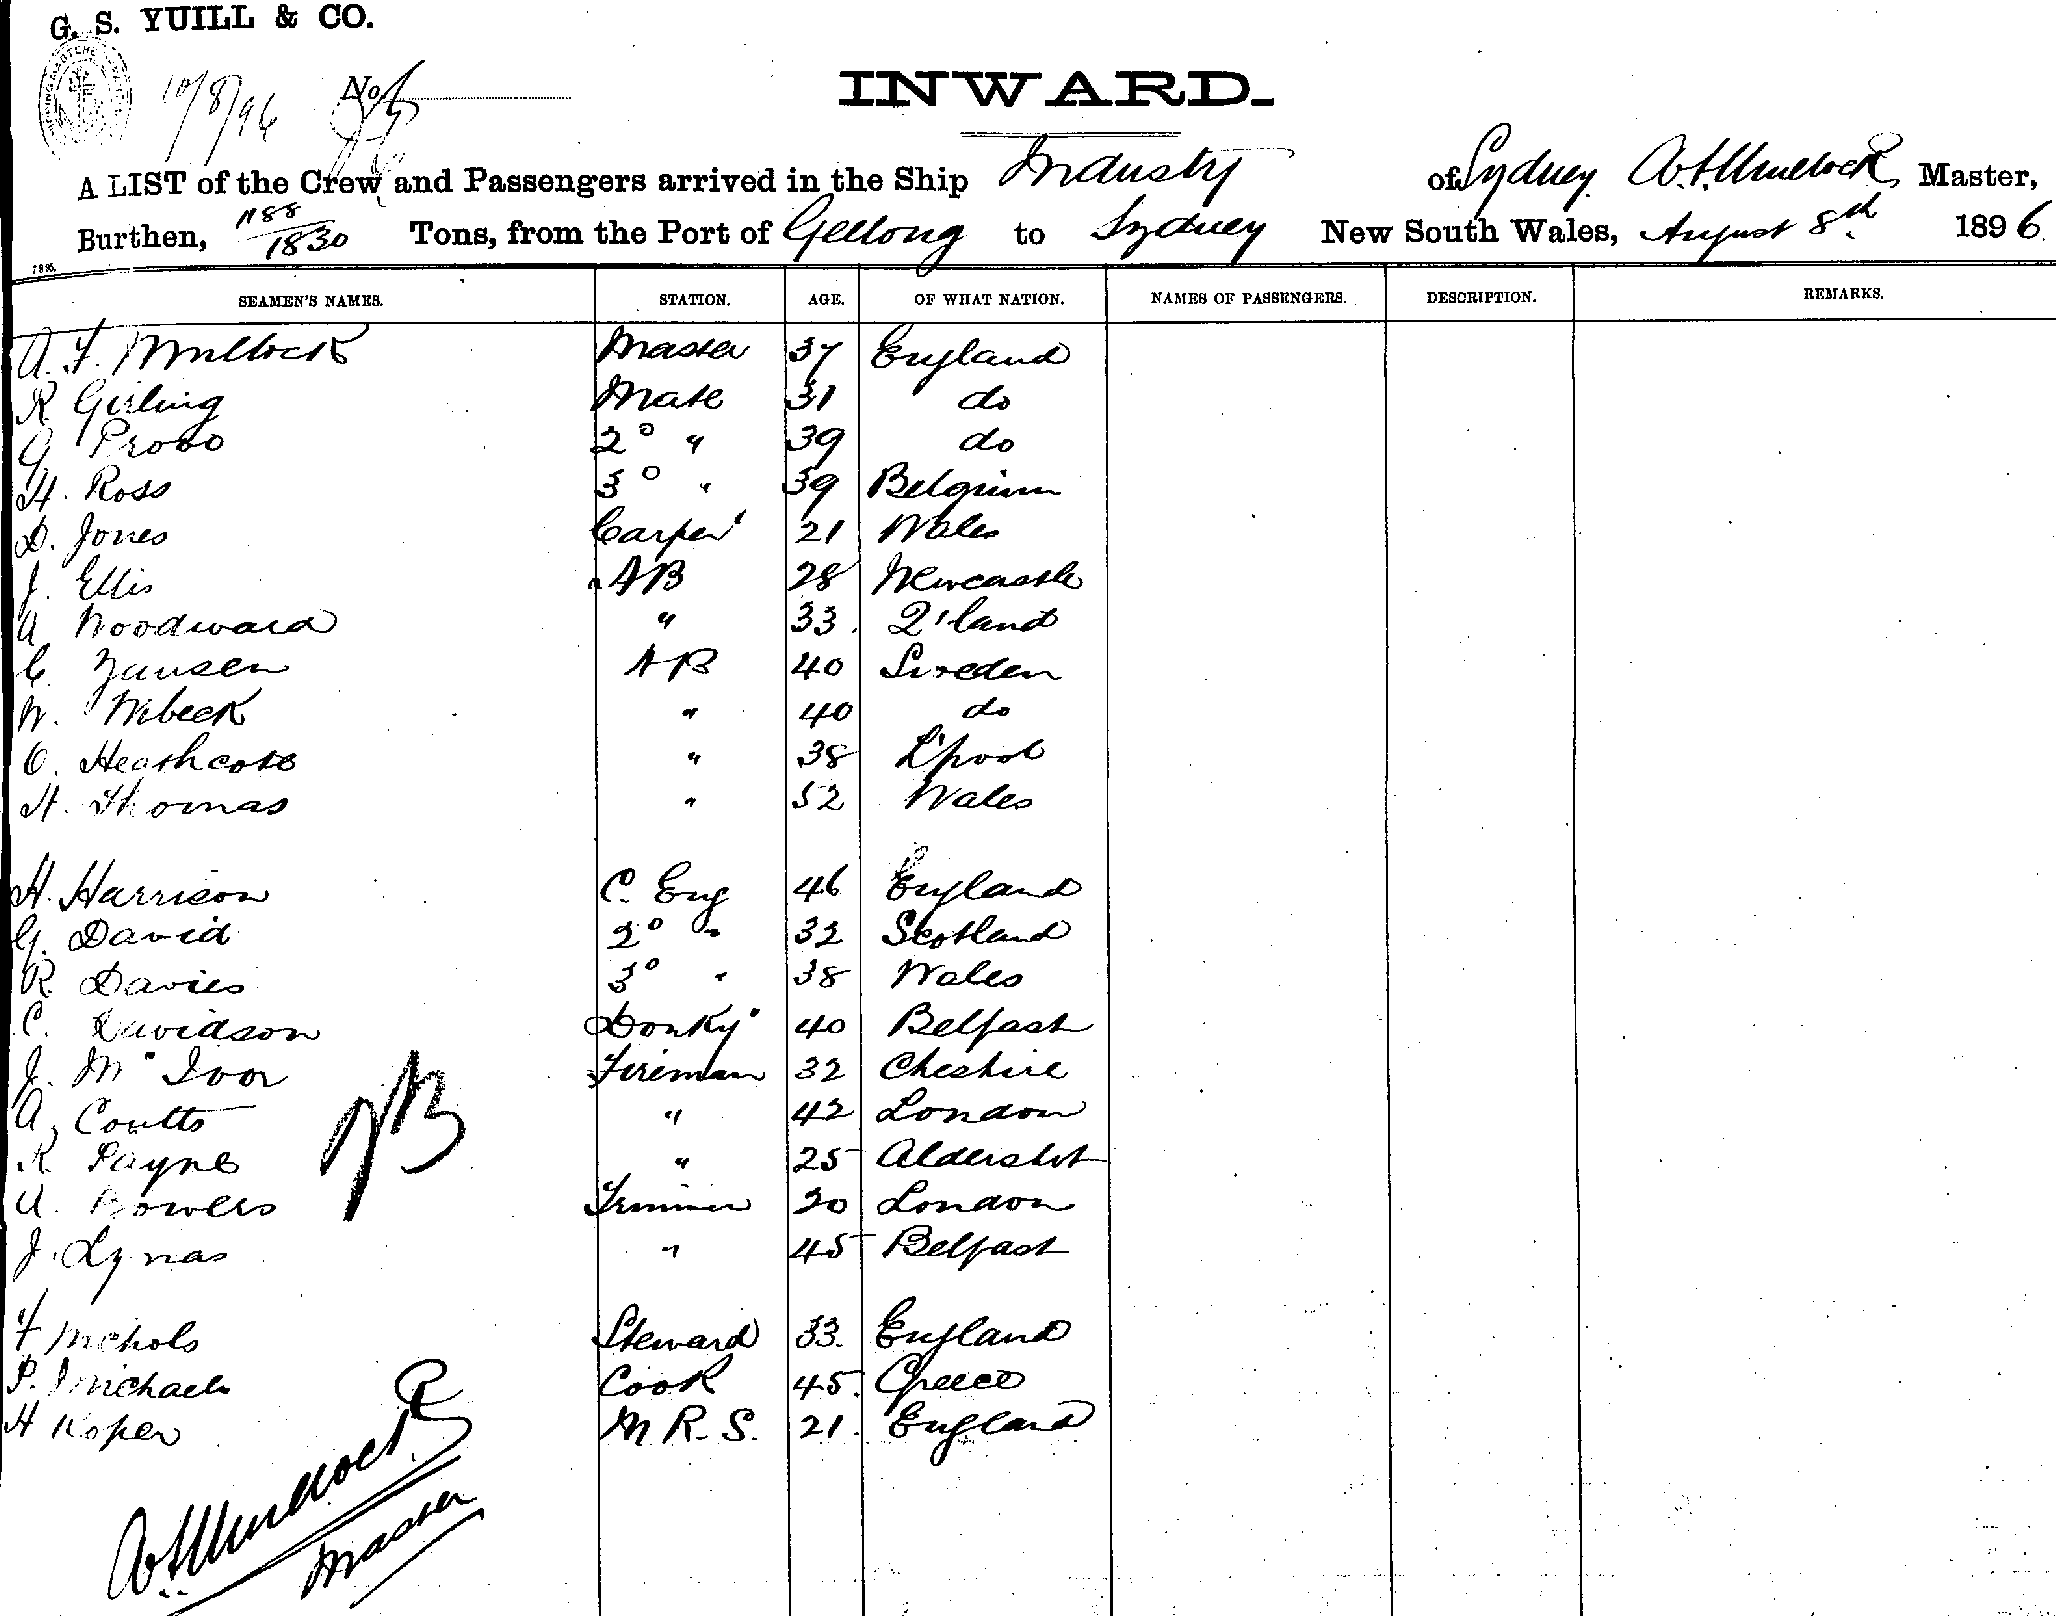 G. S. YUILL & CO.
10/8/96 No.
INWARD.
A LIST of the Crew and Passengers arrived in the Ship Industry of Sydney A. F. Mullock Master,
Burthen, 1188/1830 Tons, from the Port of Geelong to Sydney New South Wales, August 8th 1896
SEAMEN'S NAMES. STATION. AGE. OF WHAT NATION. NAMES OF PASSENGERS. DESCRIPTION. REMARKS.
A. F. Mullock Master 37 England
R Girling Mate 31 do
G Provo 2° " 39 do
H. Ross 3° " 39 Belgium
D. Jones Carpen' 21 Wales
J. Ellis AB 28 Newcastle
A Woodward " 33 Q'land
C. Jansen AB 40 Sweden
W. Wibeck " 40 do
C. Heathcote " 38 L'pool
H. Thomas " 52 Wales
H. Harrison C. Eng 46 England
G. David 2° " 32 Scotland
R. Davies 3° " 38 Wales
C. Davidson Donky' 40 Belfast
J. Mc Ivor Fireman 32 Cheshire
A. Coutts " 42 London
R. Payne " 25 Aldershot
A. Bowers Trimmer 20 London
J. Lynas " 45 Belfast
F Nichols Steward 33 England
P. Michaels Cook 45 Greece
H Roper M R. S. 21 England
A. F. Mullock
Master